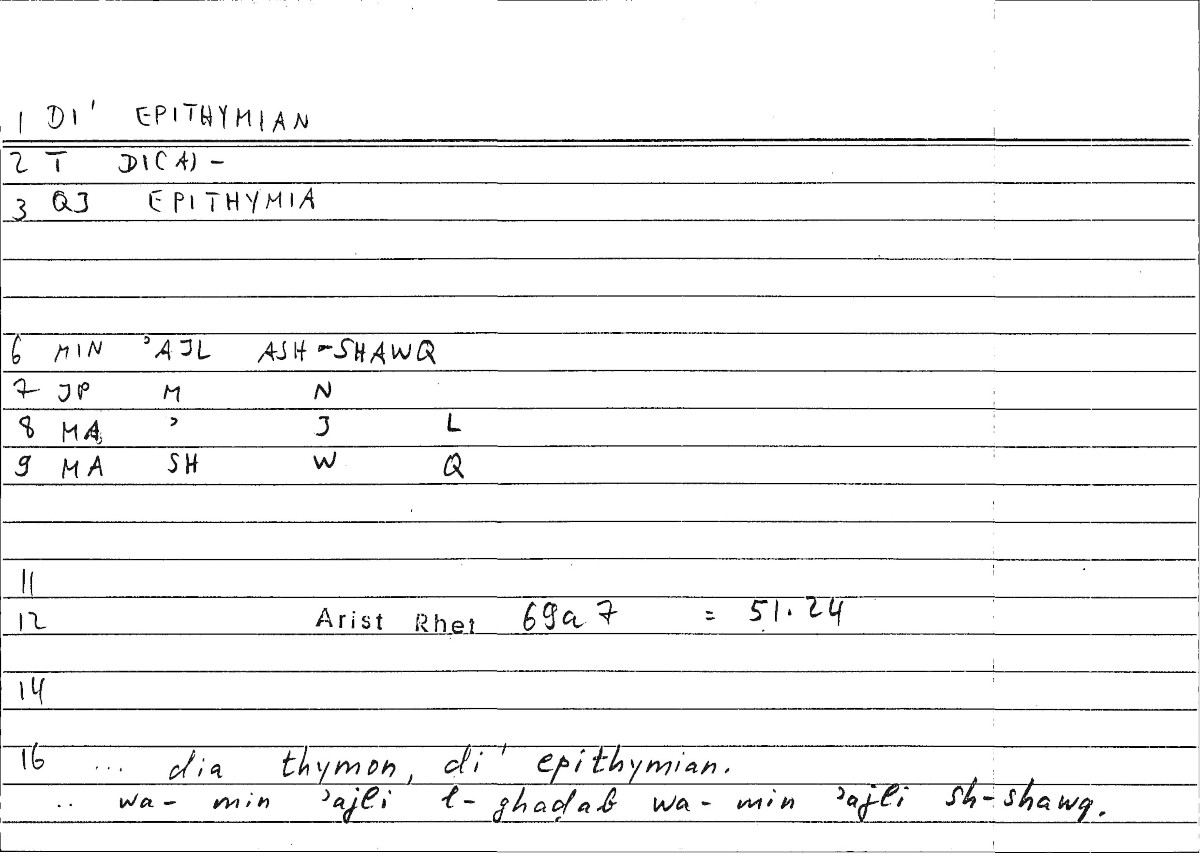 1 DI' EPITHYMIAN
2 T DI(A)-
3 QJ EPITHYMIA
6 MIN ʾAJL ASH-SHAWQ
7 JP M N
8 MA ʾ J L
9 MA SH W Q
11
12 Arist Rhet 69a7 = 51.24
14
16 ... dia thymon, di' epithymian.
.. wa- min ʾajli l-ghaḍab wa- min ʾajli sh-shawq.